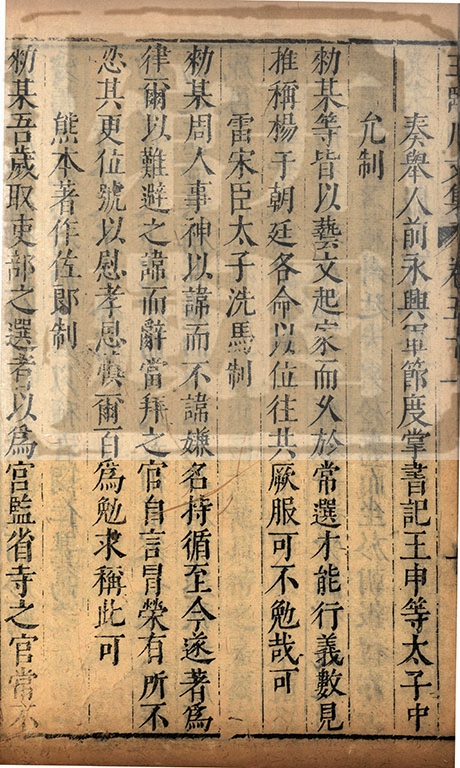 王臨川文集 卷五十一
奏舉人前永興軍節度掌書記王申等太子中
允制
勑某等皆以藝文起家而久於常選才能行義數見
推稱楊于朝廷各命以位往共厥服可不勉哉可
雷宋臣太子洗馬制
勑某周人事神以諱而不諱嫌名持循至今遂著為
律爾以難避之諱而辭當拜之官自言冒榮有所不
忍其更位號以慰孝思愼爾百為勉求稱此可
熊本著作佐郎制
勑某吾歲取吏部之選者以為宮監省寺之官常不